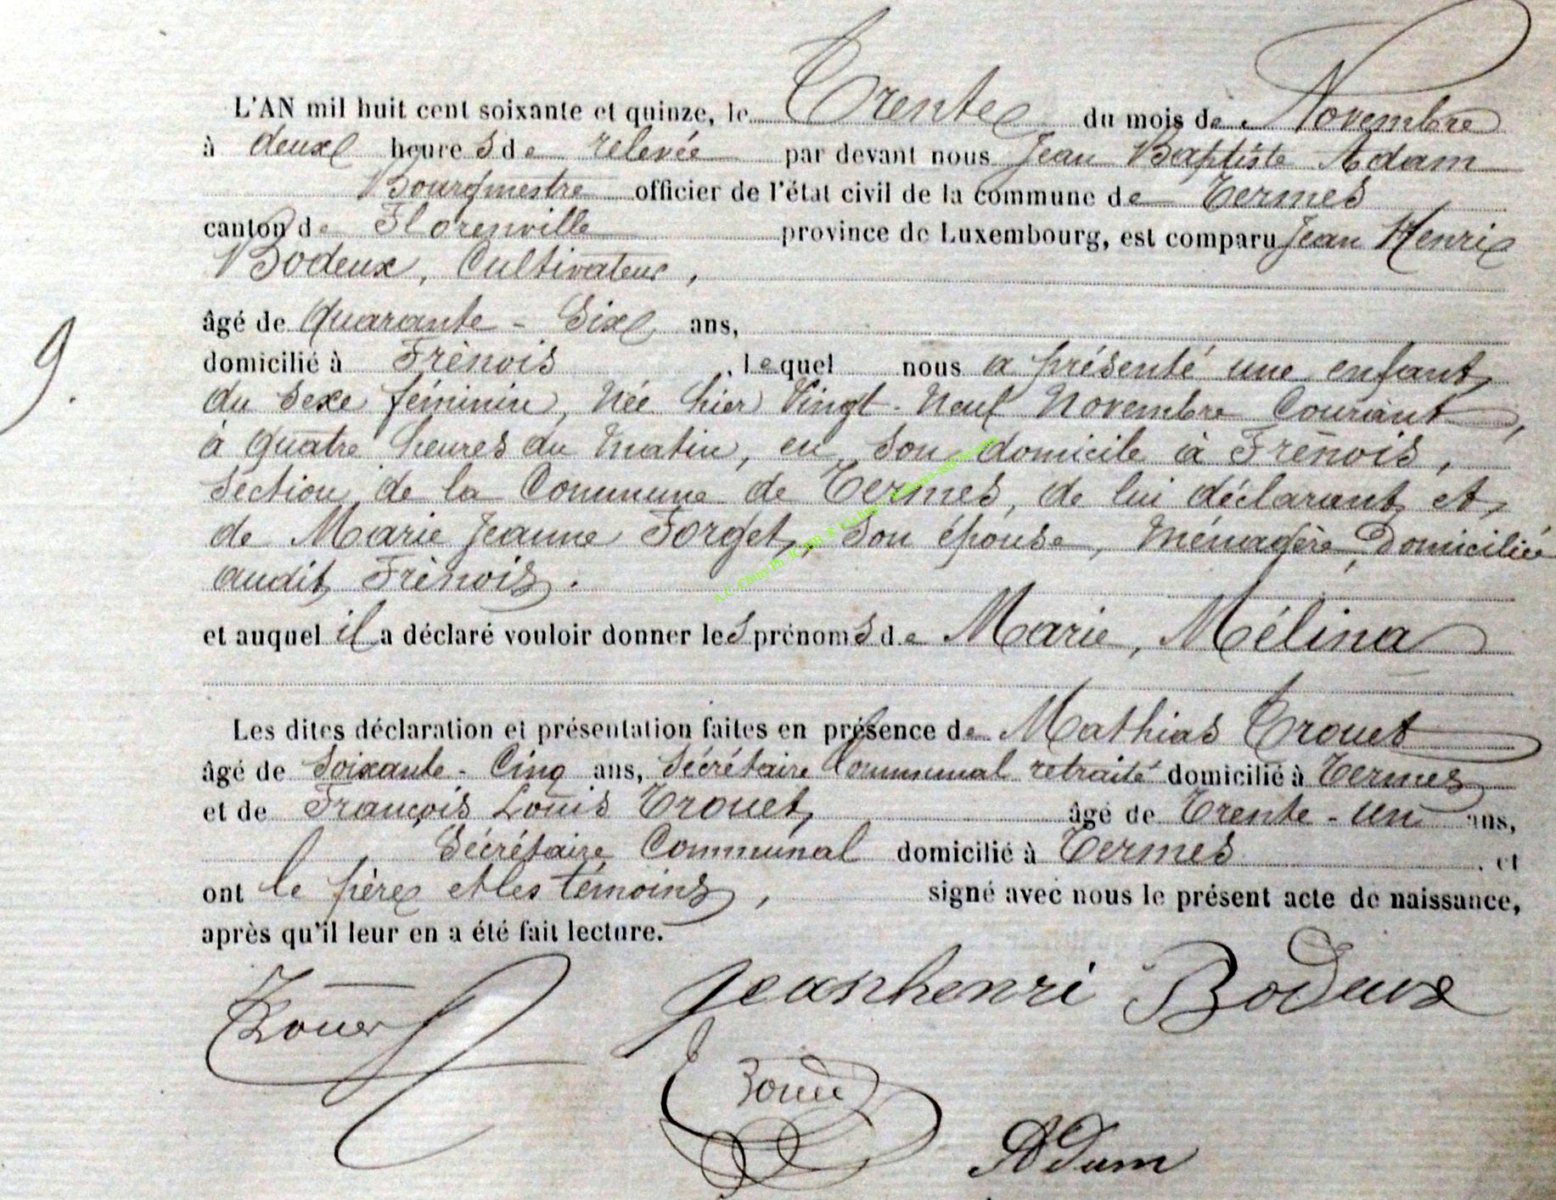 L'AN mil huit cent soixante et quinze, le Trente du mois de Novembre
à deux heures de relevée par devant nous Jean Baptiste Adam
Bourgmestre officier de l'état civil de la commune de Termes
canton de Florenville province de Luxembourg, est comparu Jean Henri
Bodeux, Cultivateur,
âgé de Quarante-Six ans,
domicilié à Frènois, lequel nous a présenté une enfant
du sexe féminin, née hier Vingt-Neuf Novembre Courant,
à quatre heures du matin, en son domicile à Frènois,
section de la Commune de Termes, de lui déclarant et
de Marie Jeanne Forget, son épouse, Ménagère Domiciliée
audit Frènois.
9.
et auquel il a déclaré vouloir donner les prénoms de Marie, Mélina
Les dites déclaration et présentation faites en présence de Mathias Trouet
âgé de Soixante-Cinq ans, Sécrétaire Communal retraité domicilié à Termes
et de François Louis Trouet, âgé de Trente-un ans,
Sécrétaire Communal domicilié à Termes et
ont le père et les témoins, signé avec nous le présent acte de naissance,
après qu'il leur en a été fait lecture.
Trouet Jeanhenri Bodeux
Adam